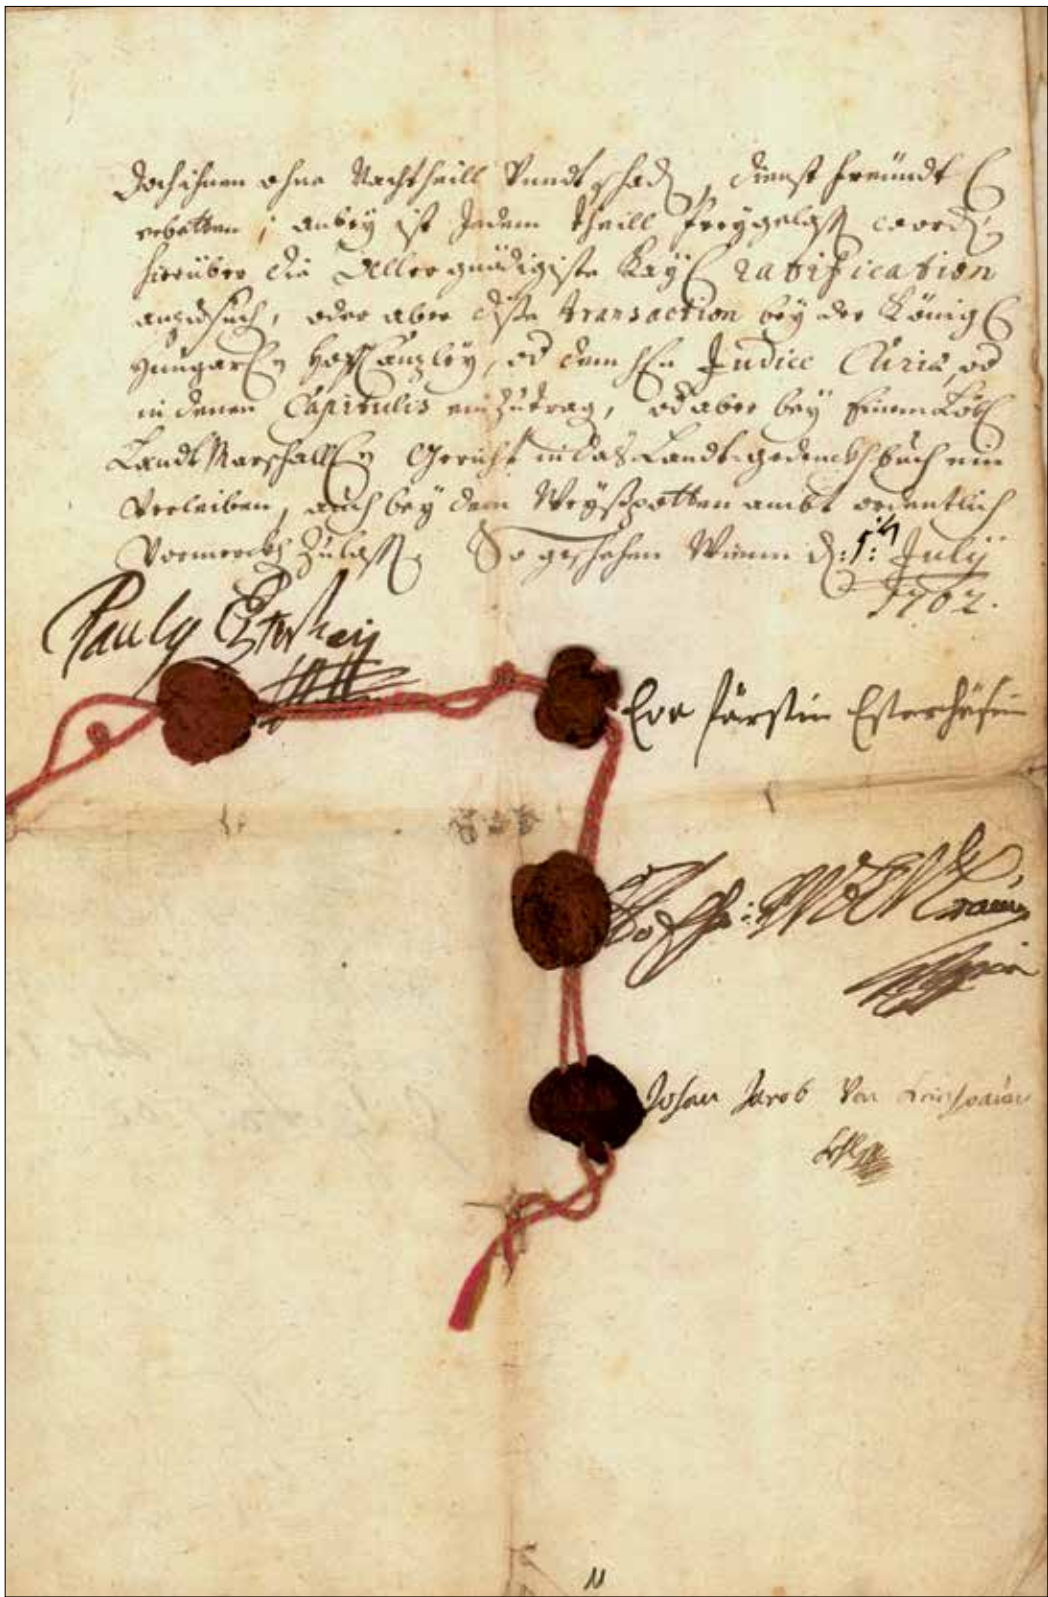 doch ihnen ohne Nachtheill Vnndt schad, dienst freündtl
erbetten; anbey ist Jedem theill freygelass word
hierüber die Allergnädigiste Kayl ratification
anzusuch, oder aber diße transaction bey der Königl
Hungar Hoff Canzley, od dem Judice Curiæ, od
in denen Capitulis einzutrag, od aber bey Einem Löbl
Landt Marschall Gericht in das Landt gedenckhbuch ein
Verleiben, auch bey dem Weyßpotten ambt ordentlich
Vormerckh Zulass. So geschehen Wienn July
1702.
Pauly
Eva fürstin Esterhásin
Johan Jacob Von